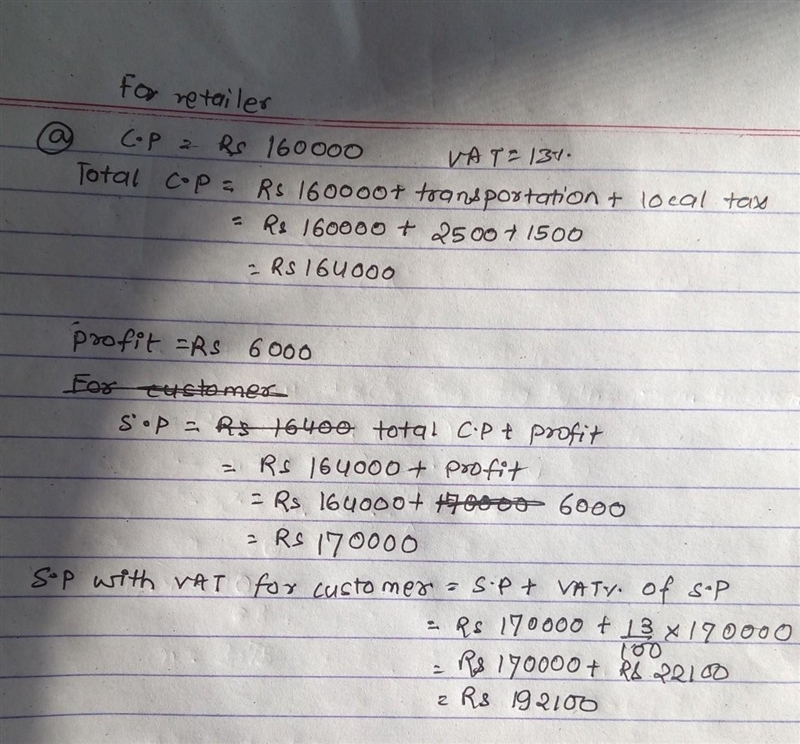 For retailer
ⓐ C.P = Rs 160000 VAT = 13%.
Total C.P = Rs 160000 + transportation + local tax
= Rs 160000 + 2500 + 1500
= Rs 164000
Profit = Rs 6000
For customer
S.P = Rs 16400 total C.P + Profit
= Rs 164000 + Profit
= Rs 164000 + 170000 6000
= Rs 170000
S.P with VAT for customer = S.P + VAT% of S.P
= Rs 170000 + 13/100 × 170000
= Rs 170000 + Rs 22100
= Rs 192100